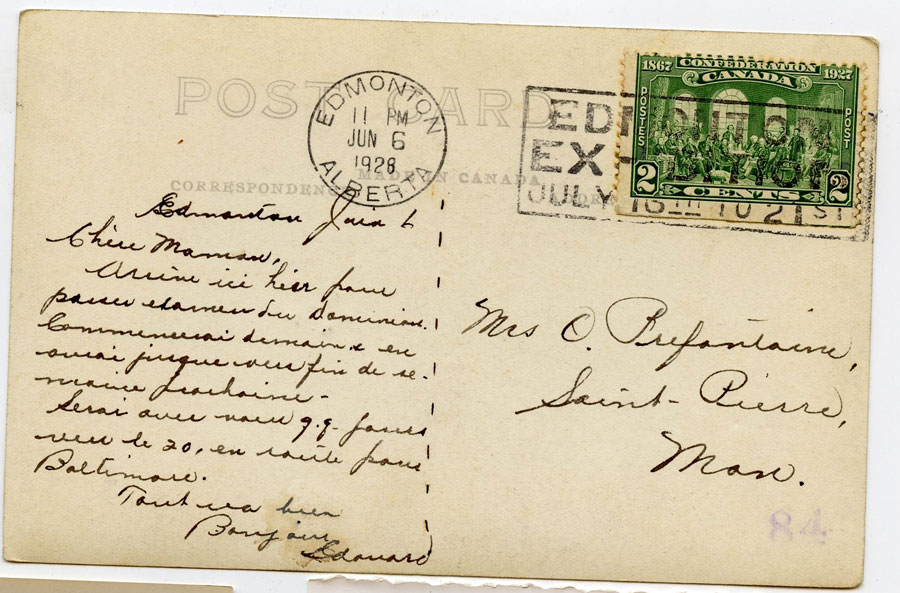 POST CARD
CORRESPONDENCE
MADE IN CANADA
EDMONTON
11 PM
JUN 6
1928
ALBERTA
EDMONTON
EXHIBITION
JULY 16TH TO 21ST
CONFEDERATION
1867 CANADA 1927
POSTES POST
2 CENTS 2
Edmonton Juin 6
Chère Maman,
Arrivé ici hier pour
passer examen du Dominion.
Commencerai demain & en
aurai jusque vers fin de se-
maine prochaine -
Serai avec vous q.q. jours
vers le 20, en route pour
Baltimore.
Tout va bien
Bonjour
Edouard
Mrs O. Prefontaine,
Saint-Pierre,
Man.
84